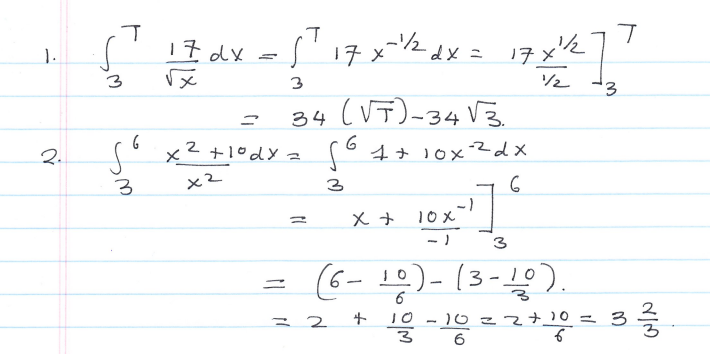 1. ∫₃ᵀ 17/√x dx = ∫₃ᵀ 17 x^(-1/2) dx = 17 x^(1/2) / (1/2) ]₃ᵀ
= 34 (√T) - 34 √3.
2. ∫₃⁶ (x² + 10 dx)/x² = ∫₃⁶ 1 + 10x^(-2) dx
= x + 10x^(-1)/(-1) ]₃⁶
= (6 - 10/6) - (3 - 10/3).
= 2 + 10/3 - 10/6 = 2 + 10/6 = 3 2/3.